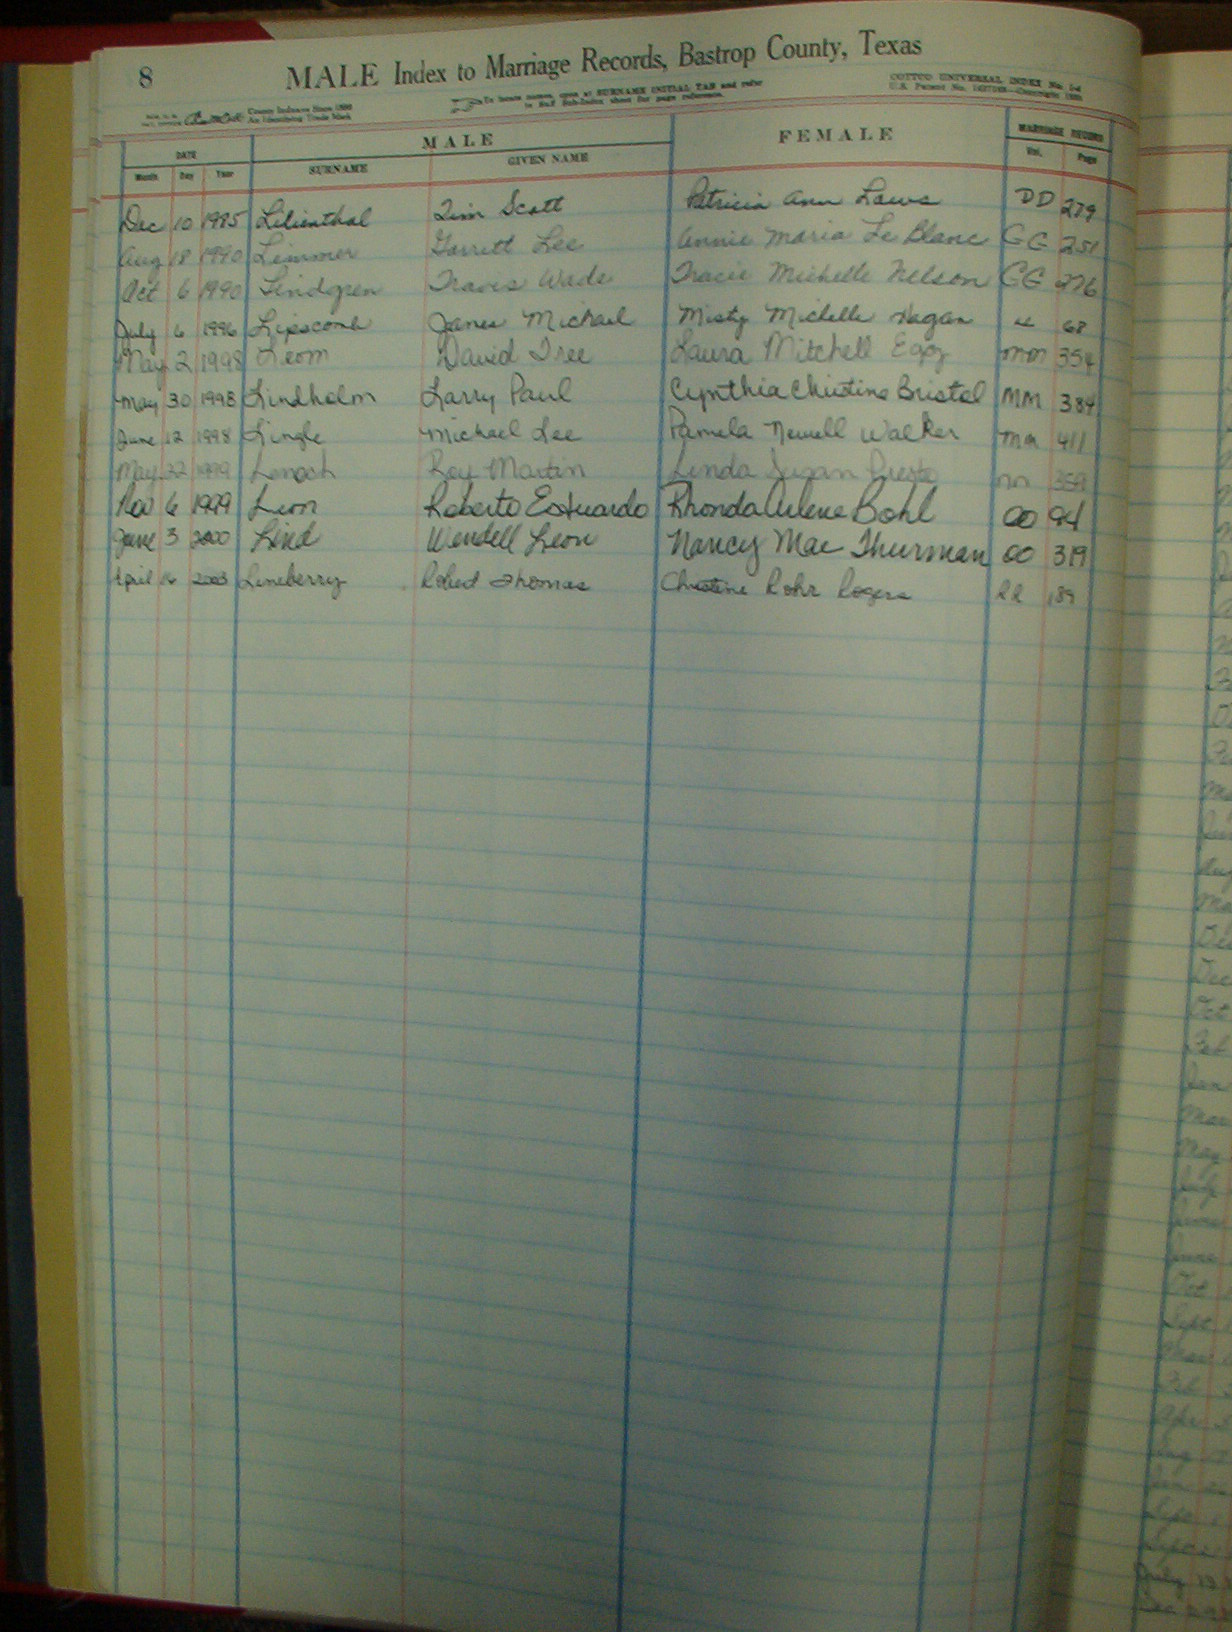 8 MALE Index to Marriage Records, Bastrop County, Texas
County Indexes Since 1888
An Identifying Trade Mark
To locate names, open at SURNAME INITIAL TAB and refer
to Sub-Index sheet for page reference.
COTTCO UNIVERSAL INDEX No.
U.S. Patent No.
DATE MALE FEMALE MARRIAGE RECORD
Month Day Year SURNAME GIVEN NAME Vol. Page
Dec 10 1985 Lilienthal Tim Scott Patricia Ann Laws DD 279
Aug 18 1990 Limmer Garrett Lee Annie Maria Le Blanc GG 251
Oct 6 1990 Lindgren Travis Wade Tracie Michelle Nelson GG 276
July 6 1996 Lipscomb James Michael Misty Michelle Hagan LL 68
May 2 1998 Leom David Tree Laura Mitchell MM 354
May 30 1998 Lindholm Larry Paul Cynthia Christine Bristol MM 384
June 12 1998 Lingle Michael Lee Pamela Newell Walker MM 411
May 22 1999 Roy Martin Linda Susan
Nov 6 1999 Leon Roberto Estuardo Rhonda Arlene Bohl OO 94
June 3 2000 Lind Wendell Leon Nancy Mae Thurman OO 319
April 16 2003 Lineberry Robert Thomas Christine Rohr Rogers RR 189